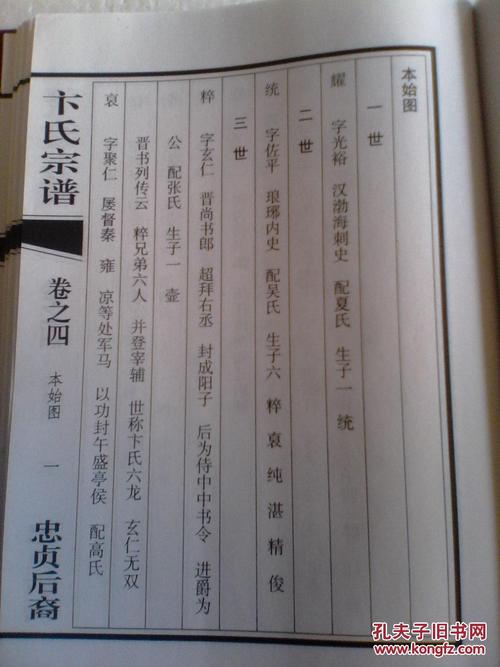 本始图
一世
耀 字光裕 汉渤海刺史 配夏氏 生子一 统
二世
统 字佐平 琅琊内史 配吴氏 生子六 粹 哀 纯 湛 精 俊
三世
粹 字玄仁 晋尚书郎 超拜右丞 封成阳子 后为侍中中书令 进爵为
公 配张氏 生子一 壶
晋书列传云 粹兄弟六人 并登宰辅 世称卞氏六龙 玄仁无双
哀 字聚仁 屡督秦 雍 凉等处军马 以功封午盛亭侯 配高氏
卞氏宗谱
卷之四
本始图
一
忠贞后裔
孔夫子旧书网
www.kongfz.com